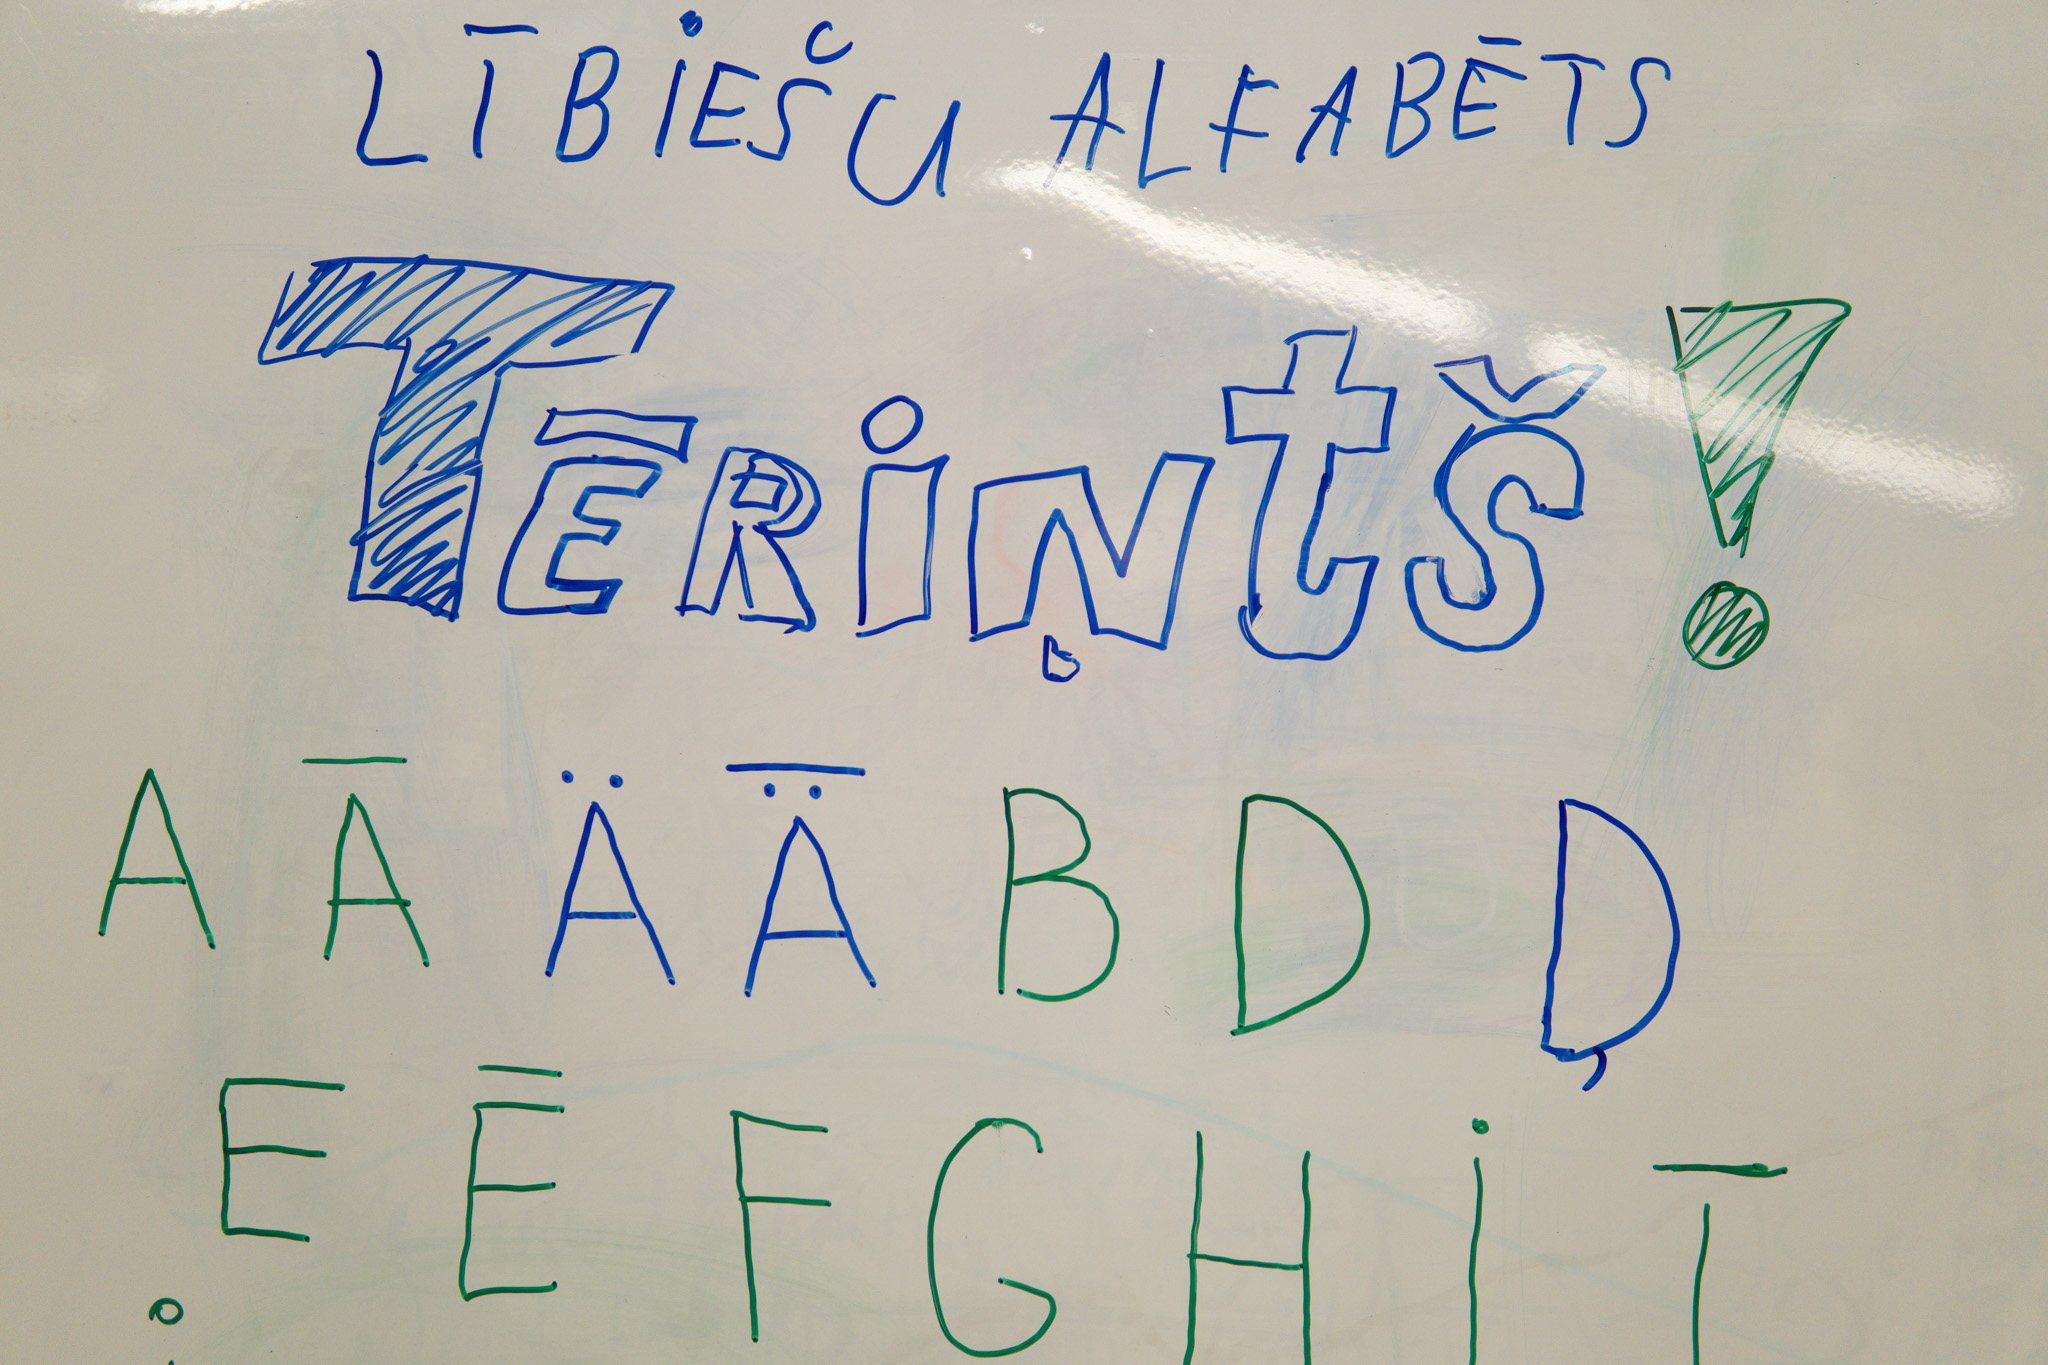 LĪBIEŠU ALFABĒTS
TĒRIŅTŠ!
A Ā Ä Ǟ B D Ḑ
E Ē F G H I Ī